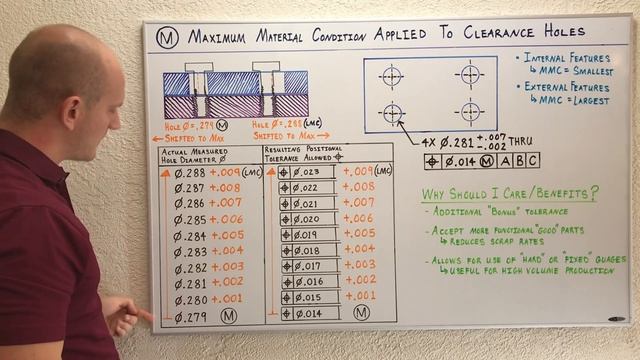 Ⓜ MAXIMUM MATERIAL CONDITION APPLIED TO CLEARANCE HOLES
HOLE Ø=.279 Ⓜ HOLE Ø=.288 (LMC)
← SHIFTED TO MAX SHIFTED TO MAX →
• INTERNAL FEATURES
↳ MMC = SMALLEST
• EXTERNAL FEATURES
↳ MMC = LARGEST
4X Ø.281 +.007 -.002 THRU
⌖ Ø.014 Ⓜ A B C
ACTUAL MEASURED
HOLE DIAMETER Ø
Ø.288 +.009 (LMC)
Ø.287 +.008
Ø.286 +.007
Ø.285 +.006
Ø.284 +.005
Ø.283 +.004
Ø.282 +.003
Ø.281 +.002
Ø.280 +.001
Ø.279 Ⓜ
RESULTING POSITIONAL
TOLERANCE ALLOWED ⌖
⌖ Ø.023 +.009 (LMC)
⌖ Ø.022 +.008
⌖ Ø.021 +.007
⌖ Ø.020 +.006
⌖ Ø.019 +.005
⌖ Ø.018 +.004
⌖ Ø.017 +.003
⌖ Ø.016 +.002
⌖ Ø.015 +.001
⌖ Ø.014 Ⓜ
WHY SHOULD I CARE/BENEFITS?
- ADDITIONAL "BONUS" TOLERANCE
- ACCEPT MORE FUNCTIONAL "GOOD" PARTS
↳ REDUCES SCRAP RATES
- ALLOWS FOR USE OF "HARD" OR "FIXED" GUAGES
↳ USEFUL FOR HIGH VOLUME PRODUCTION